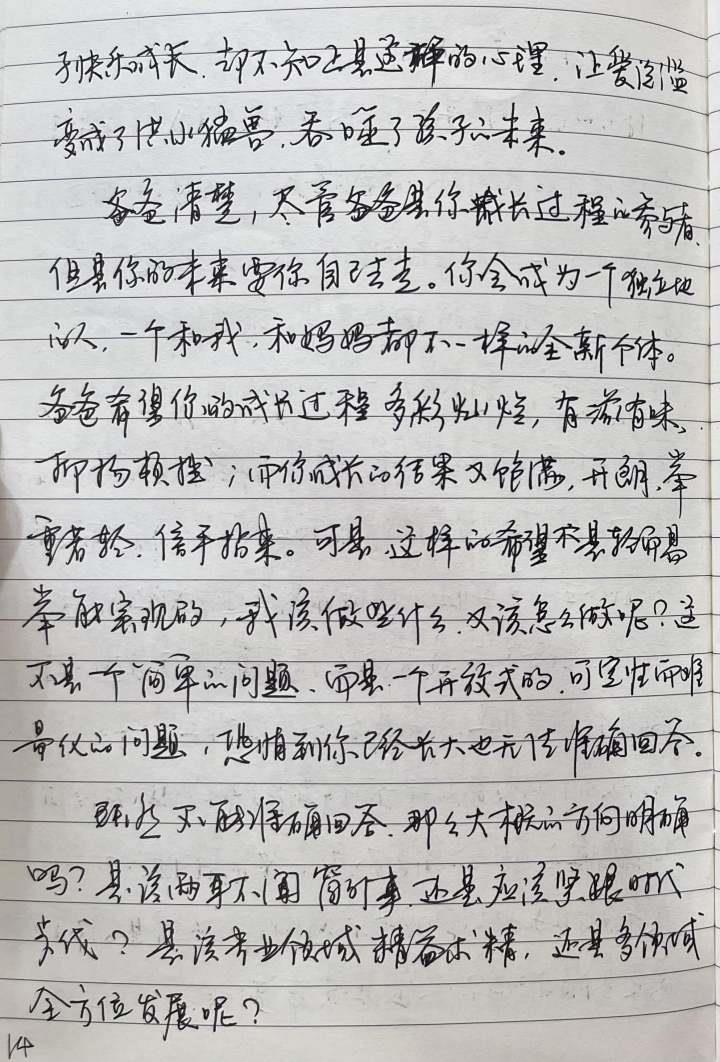 子快乐成长，却不知正是这样的心理，让爱泛滥
变成了洪水猛兽，吞噬了孩子的未来。
爸爸清楚，尽管爸爸是你成长过程的参与者，
但是你的未来要你自己去走。你会成为一个独立地
的人，一个和我，和妈妈都不一样的全新个体。
爸爸希望你的成长过程多彩灿烂，有滋有味、
抑扬顿挫；而你成长的结果又饱满，开朗，举
重若轻，信手拈来。可是，这样的希望不是轻而易
举能实现的，我该做些什么，又该怎么做呢？这
不是一个简单的问题，而是一个开放式的，可定性而难
量化的问题，恐怕到你已经长大也无法准确回答。
既然不能准确回答，那么大概的方向明确
吗？是该两耳不闻窗外事，还是应该紧跟时代
步伐？是该专业领域精益求精，还是多领域
全方位发展呢？
14